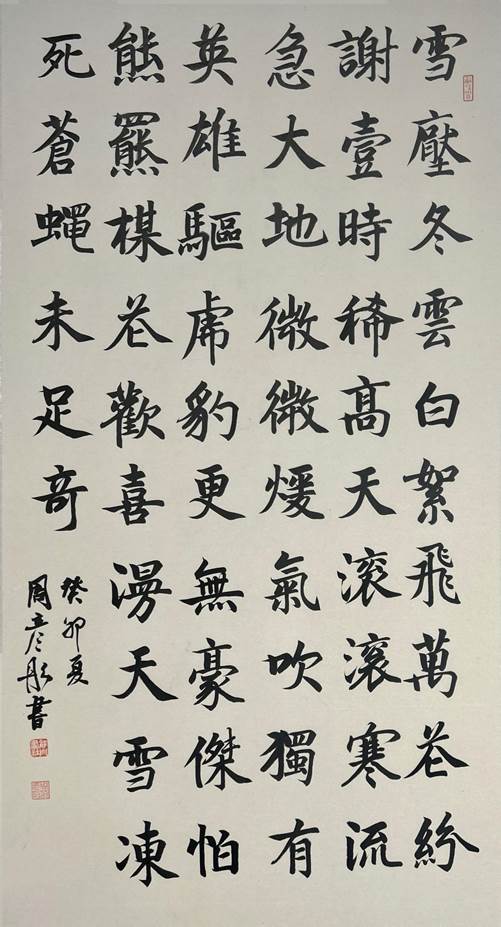 雪壓冬雲白絮飛萬花紛
謝壹時稀髙天滾滾寒流
急大地微微煖氣吹獨有
英雄驅虎豹更無豪傑怕
熊羆楳花歡喜漫天雪凍
死蒼蠅未足奇
癸卯夏
周彦書